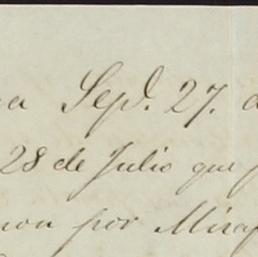 a Sep. 27. a
28 de Julio que
non por Mira